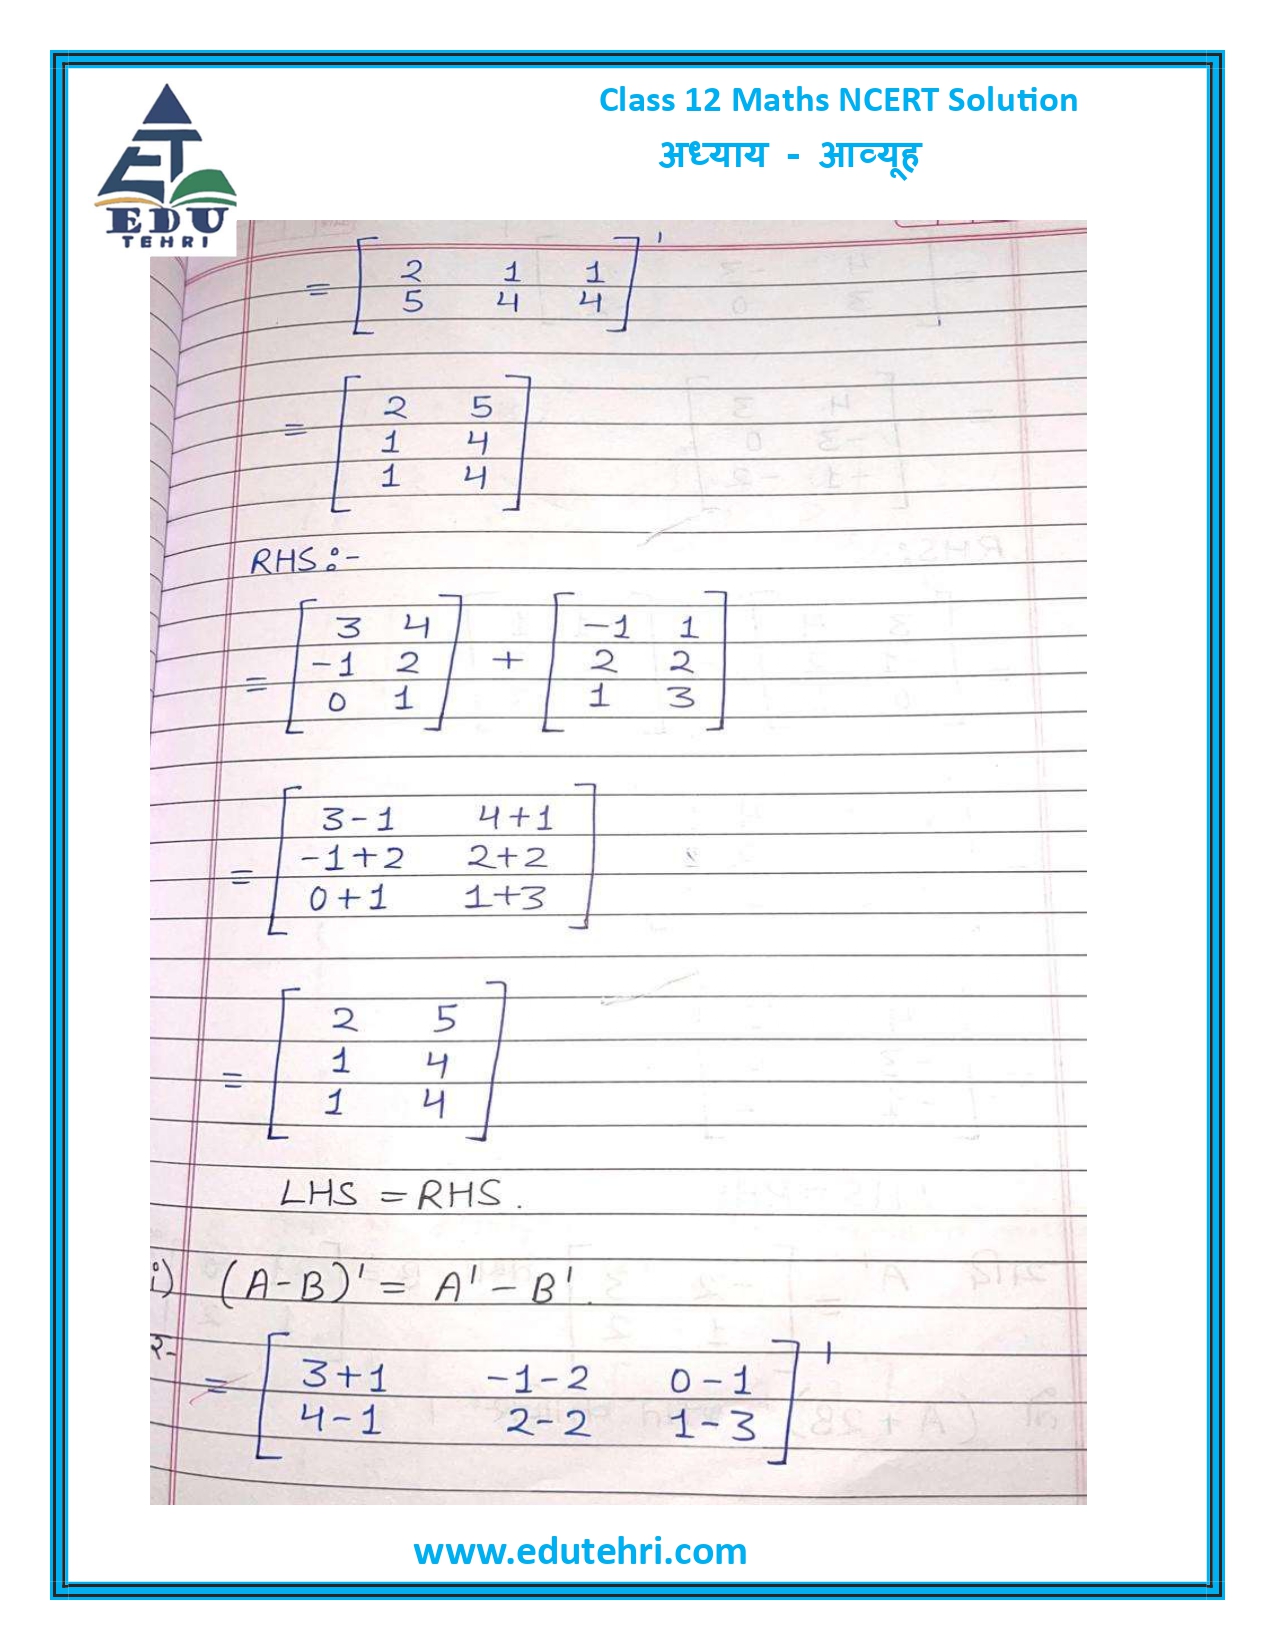 Class 12 Maths NCERT Solution
अध्याय - आव्यूह
EDU
TEHRI
= [ 2 1 1 ]'
5 4 4
= [ 2 5 ]
1 4
1 4
RHS:-
= [ 3 4 ] + [ -1 1 ]
-1 2 2 2
0 1 1 3
= [ 3-1 4+1 ]
-1+2 2+2
0+1 1+3
= [ 2 5 ]
1 4
1 4
LHS = RHS.
i) (A-B)' = A' - B'.
= [ 3+1 -1-2 0-1 ]'
4-1 2-2 1-3
www.edutehri.com